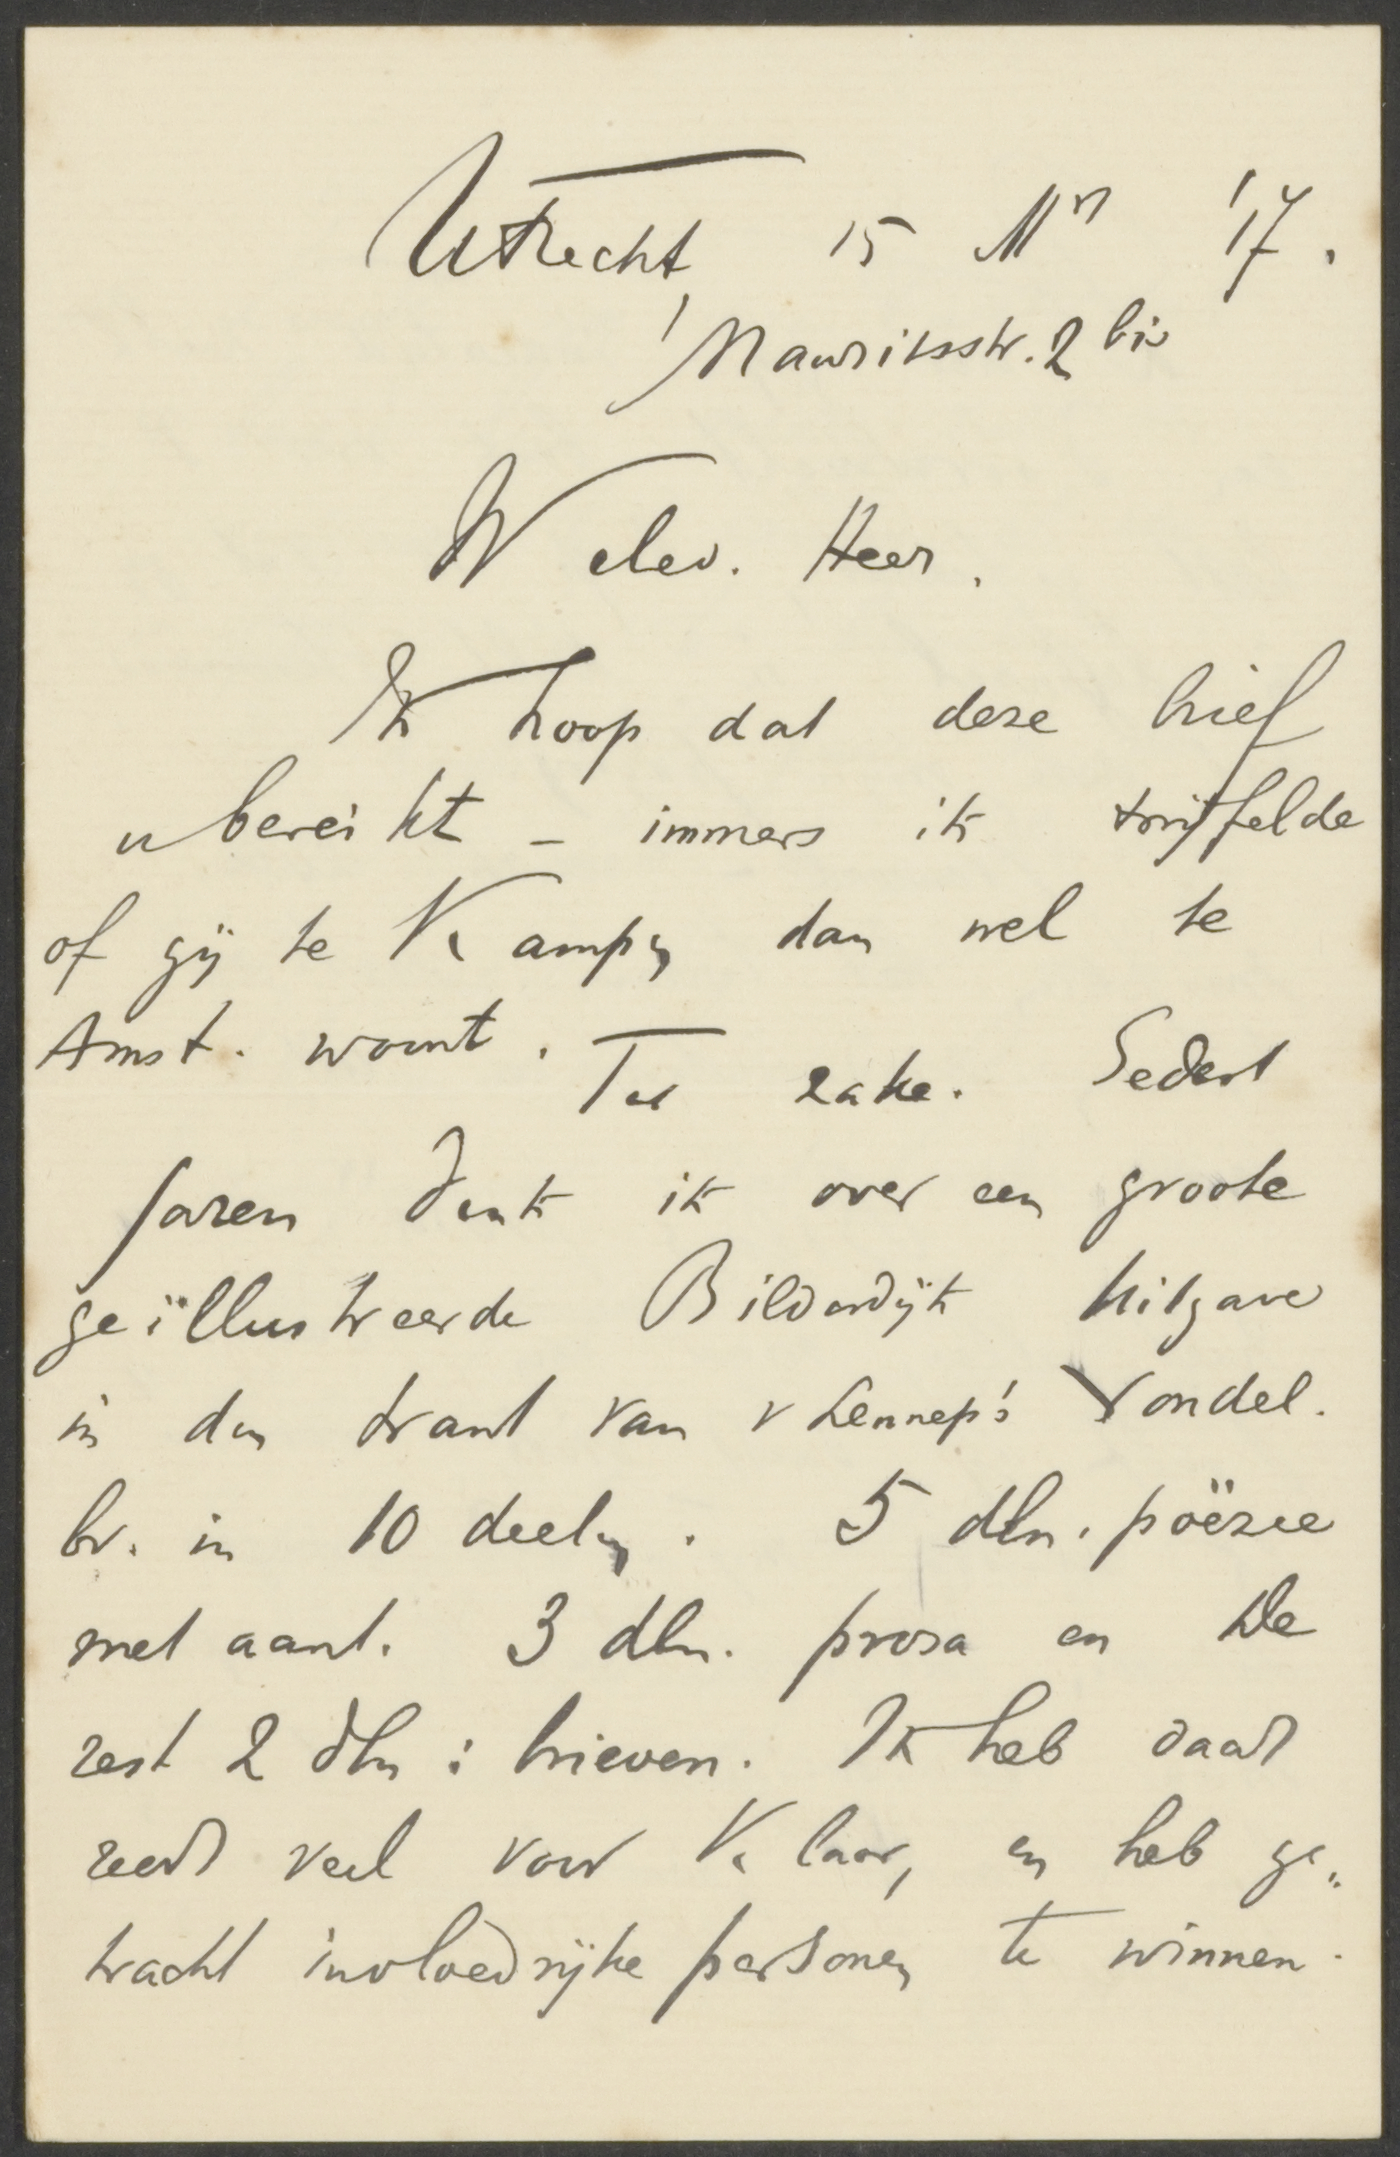 Utrecht, 15 Mrt '17.
Mauritsstr. 2 bis
WelEd. Heer.
Ik hoop dat deze brief
u bereikt – immers ik twijfelde
of gij te Kampen dan wel te
Amst. woont. Ter zake. Sedert
jaren denk ik over een groote
geïllustreerde Bilderdijk uitgave
in den trant van v Lennep's Vondel.
bv. in 10 deelen. 5 dln. poëzie
met aant. 3 dln. proza en de
rest 2 dln : brieven. Ik heb daar
reeds veel voor klaar, en heb ge„
tracht invloedrijke personen te winnen.